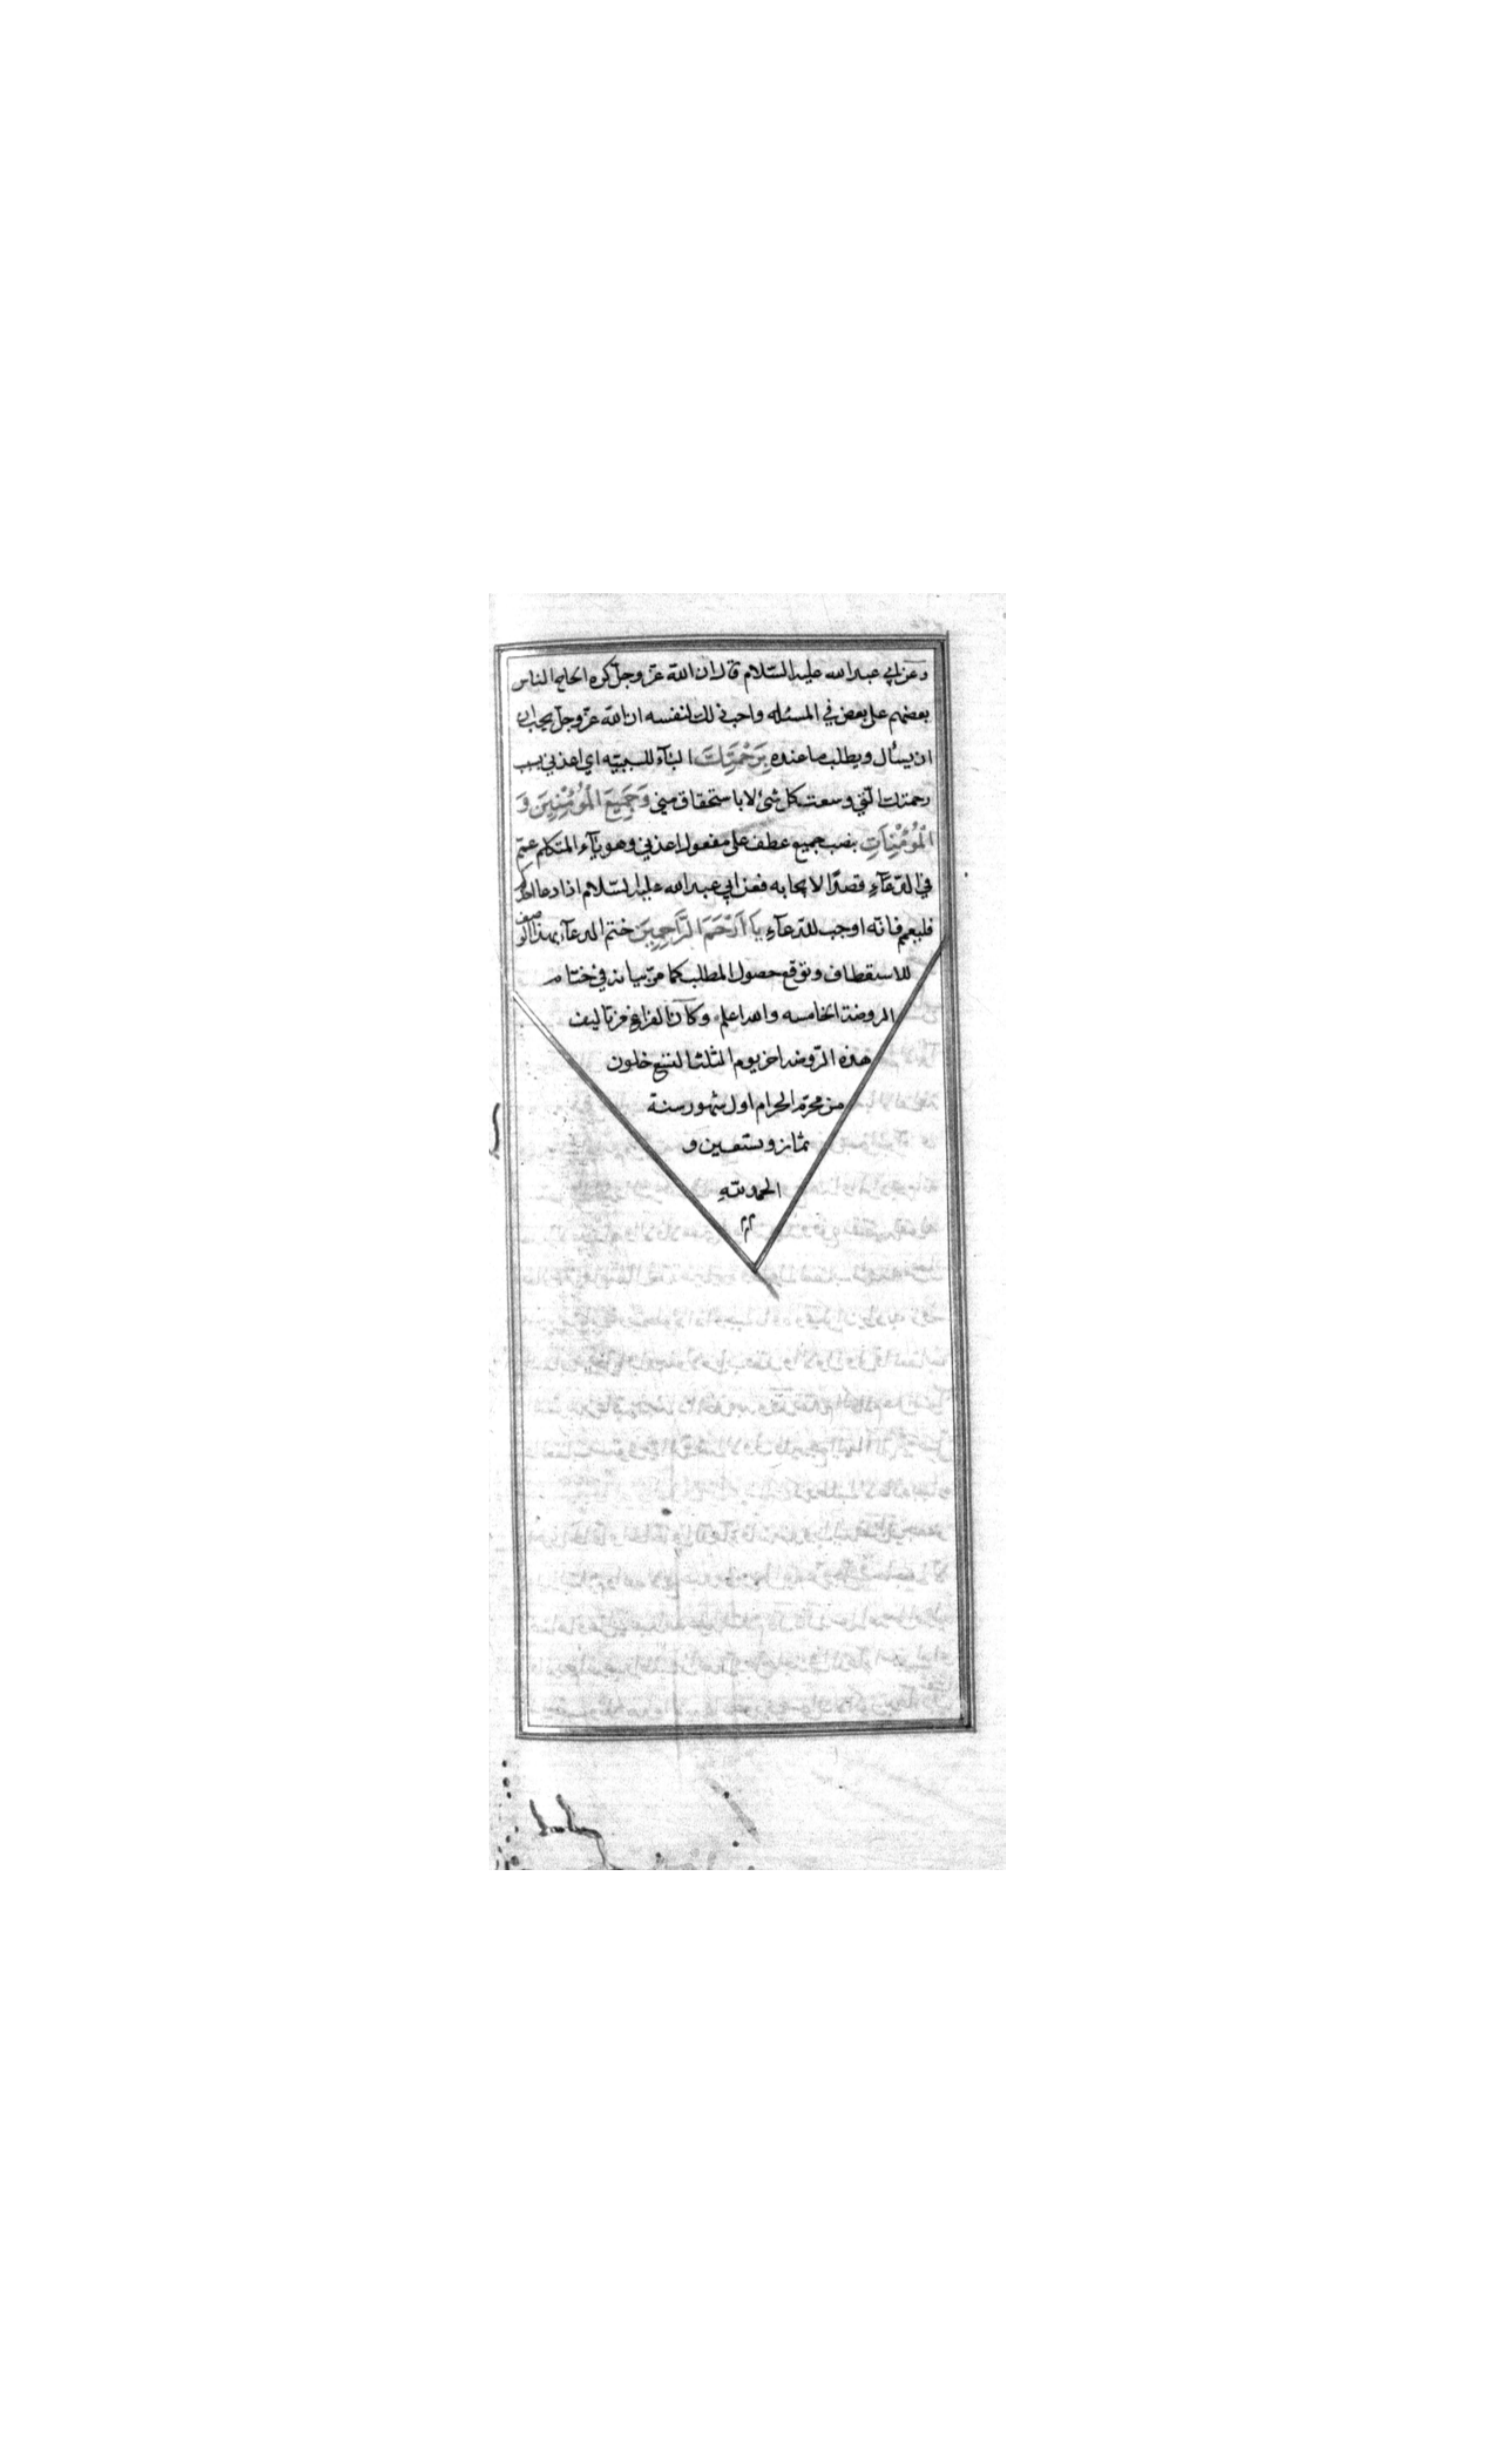 وعن ابي عبد الله عليه السّلام قال ان الله عزّ وجلّ كره الحاح الناس
بعضهم على بعض في المسئله واحب ذلك لنفسه ان الله عزّ وجلّ يحب ان
ان يسأل ويطلب ما عنده بِرَحْمَتِكَ الباء للسببيّه اي اعذني بسبب
رحمتك الّتي وسعت كل شئ لا باستحقاق مني وَجَمِيعَ الْمُؤْمِنِينَ وَ
الْمُؤْمِنَاتِ بنصب جميع عطف على مفعول اعذني وهو ياء المتكلم عمّم
في الدّعآءِ قصدًا الاجابه فعن ابي عبد الله عليه السّلام اذا دعا احدكم
فليعم فانّه اوجب للدّعآءِ يَا اَرْحَمَ الرَّاحِمِينَ ختم الدعآء بهذا الوصف
للاستعطاف وتوقع حصول المطلب كما مرّ بيانه في ختام
الروضة الخامسه والله اعلم وكان الفراغ من تاليف
هذه الرّوضه اخر يوم الثلثا لتسع خلون
من محرّم الحرام اول شهور سنة
ثمان وتسعين و
الحمد للهِ